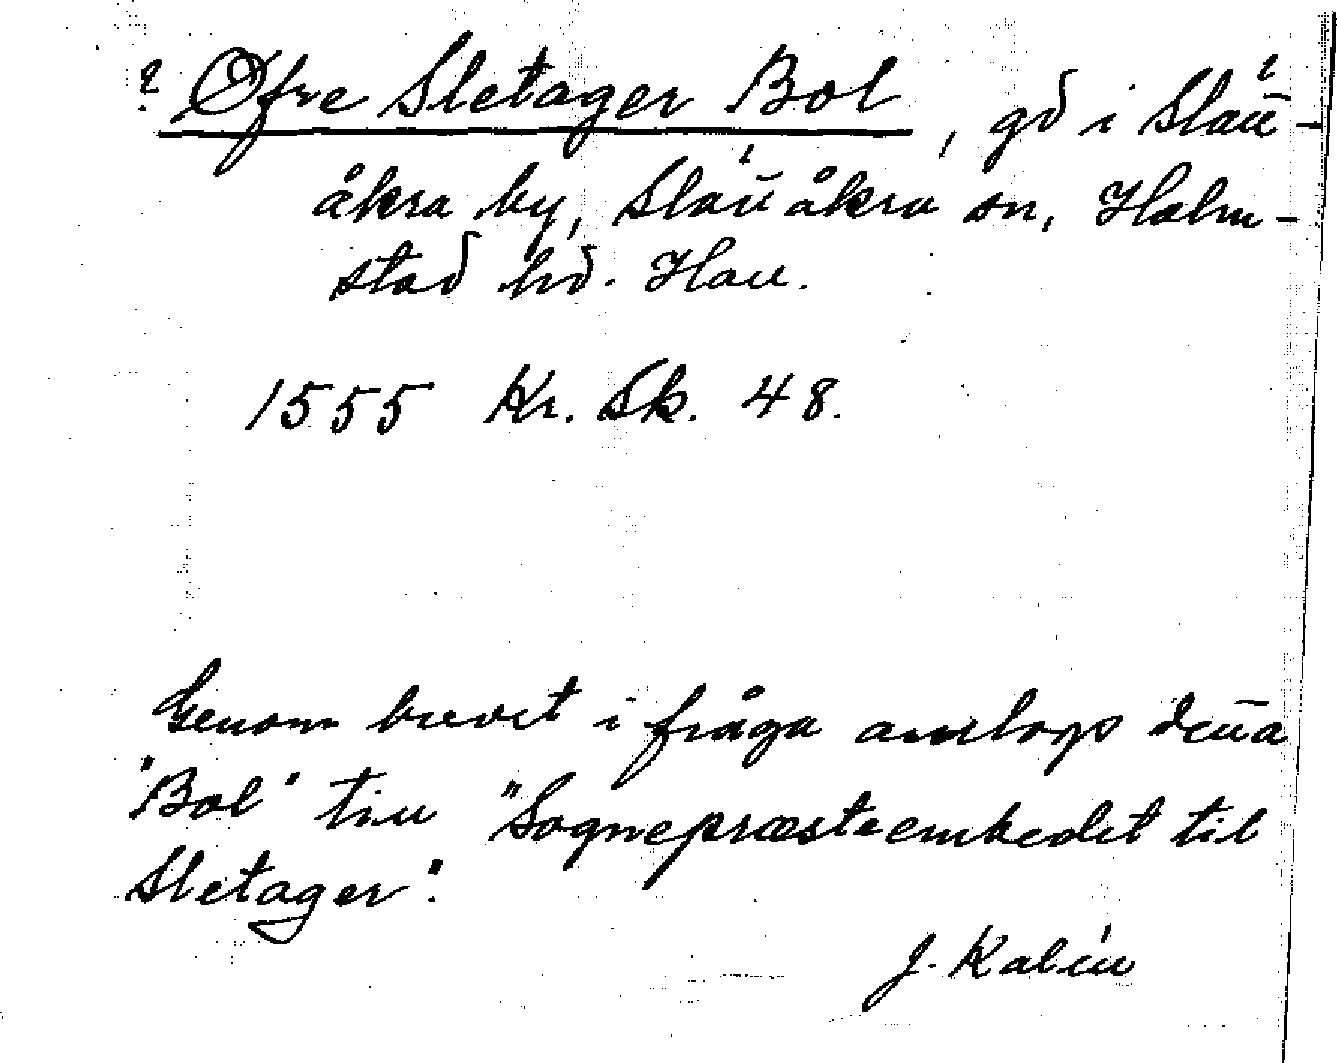 ? Øfre Sletager Bol, gd i Slätt-
åkra by, Slättåkra sn, Halm-
stad hd. Hall.
1555 Kr. Sk. 48.
Genom brevet i fråga anslogs denna
"Bol" till "Sognepræsteembedet til
Sletager".
J. Kalén